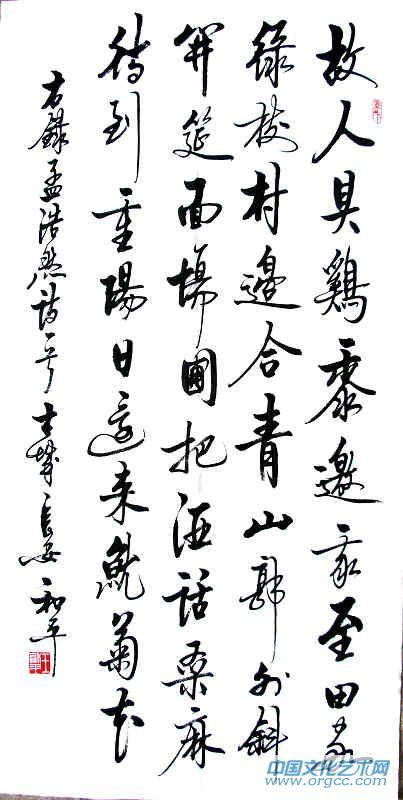 故人具鷄黍邀我至田家
綠樹村邊合青山郭外斜
開筵面場圃把酒話桑麻
待到重陽日還来就菊花
右錄孟浩然詩一首古城長安和平
中国文化艺术网
www.orgcc.com